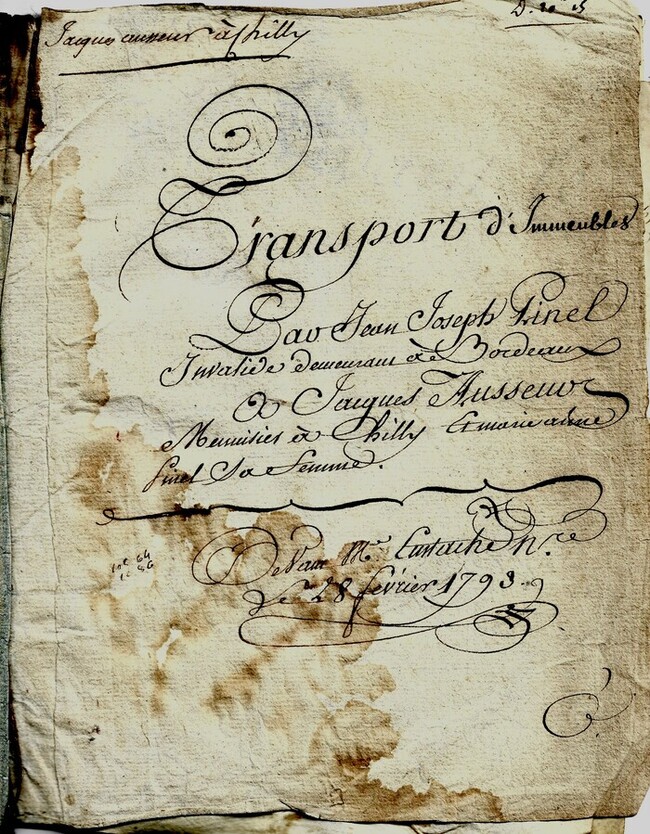 Jacques ausseur à Chilly
Transport d'Immeubles
Par Jean Joseph Pinel
Invalide demeurant à Bordeaux
a Jacques Ausseur
Menuisier à Chilly Et marie anne
Pinel Sa femme.
Devant Me Eustache Nre
Le 28 février 1793.